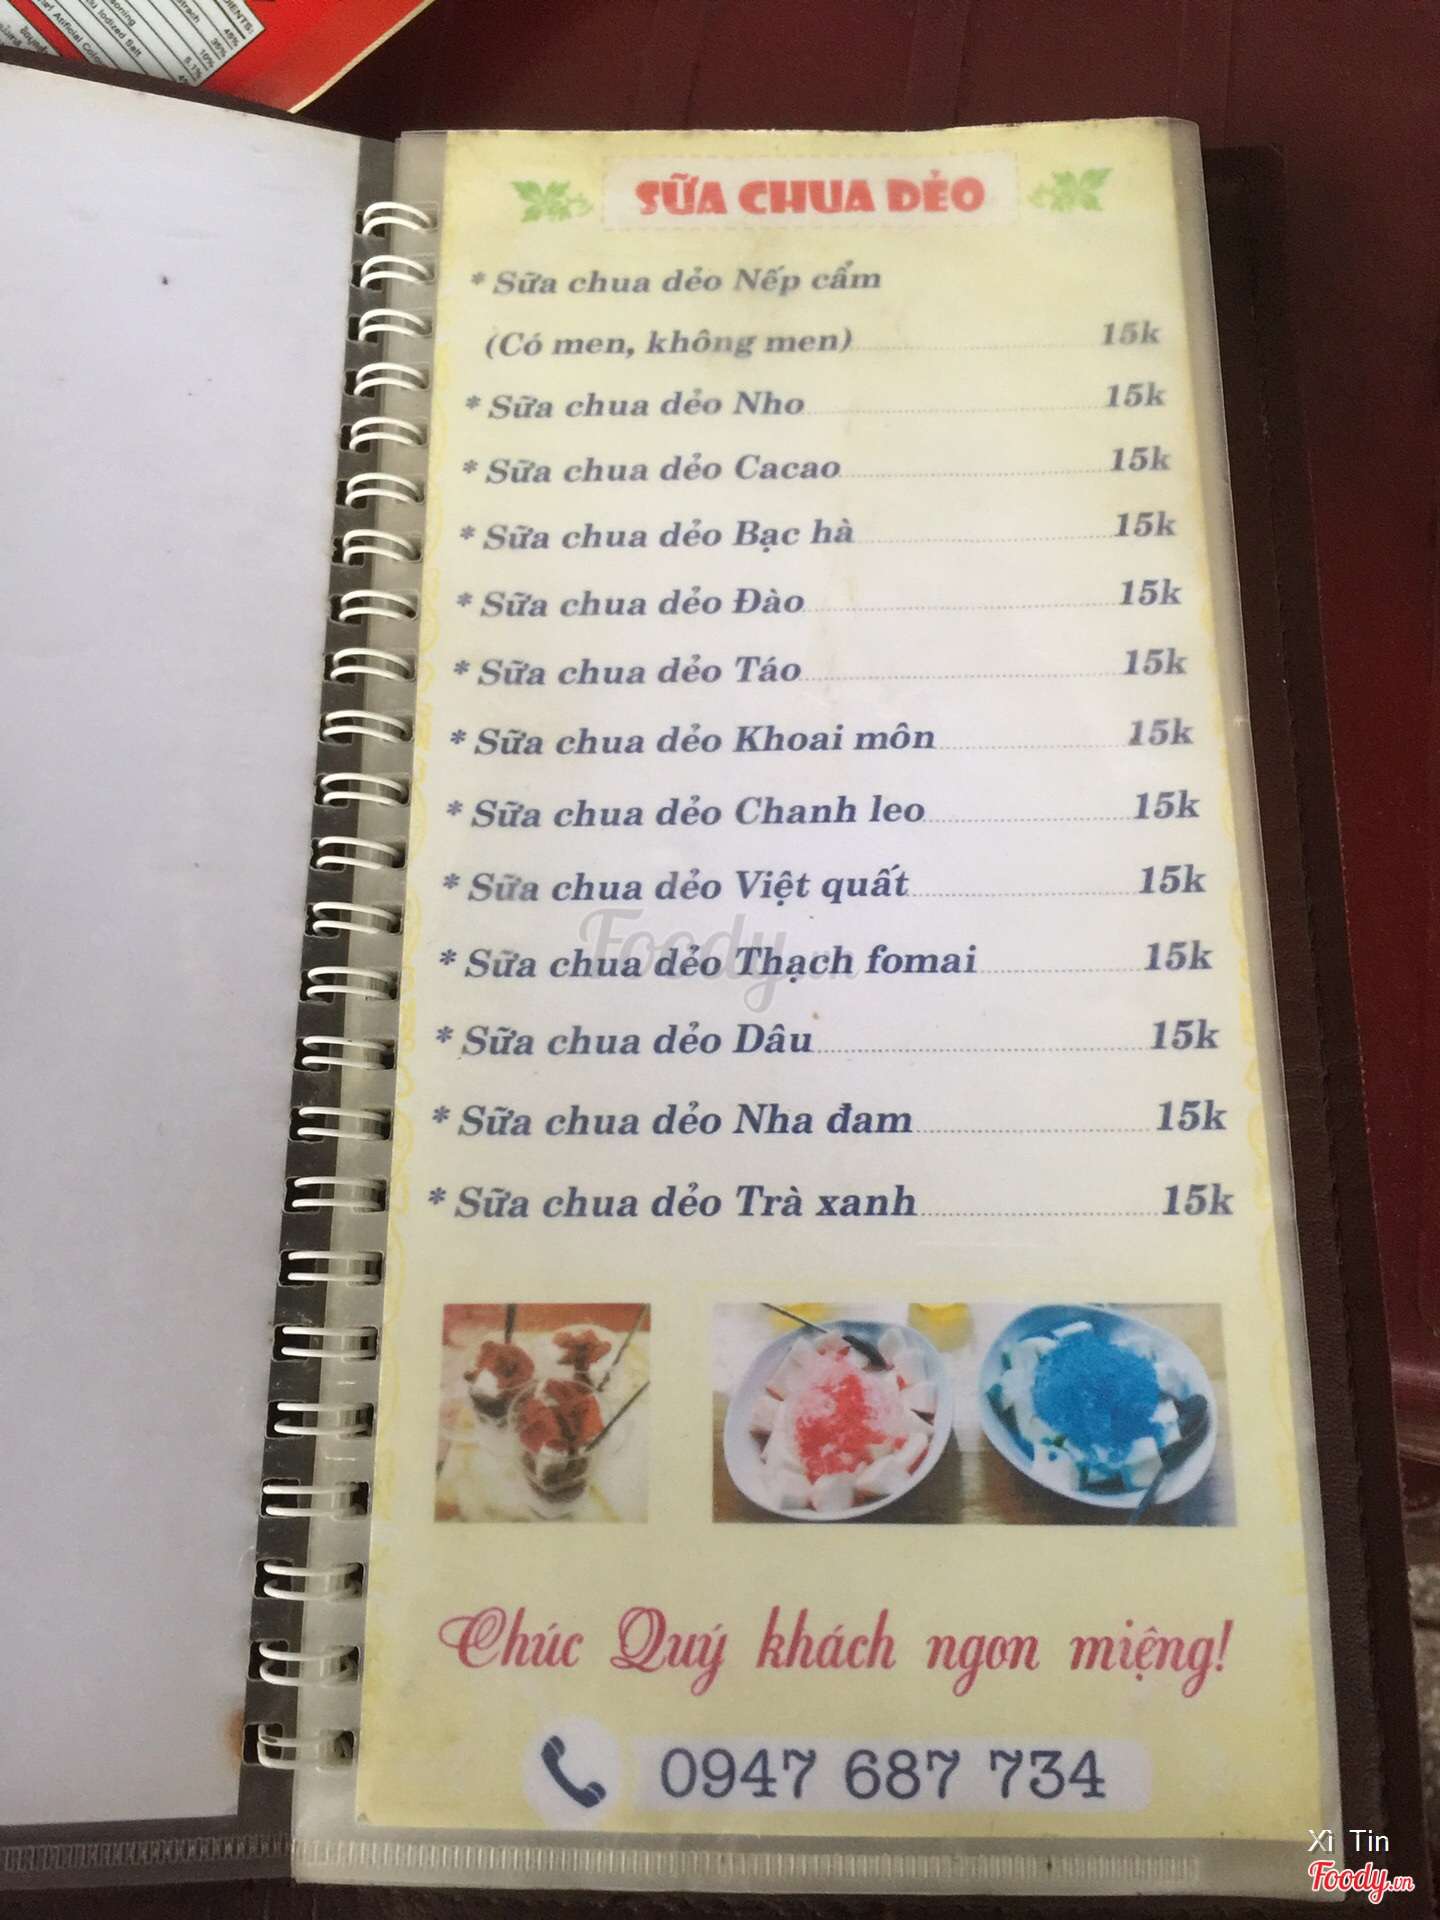 SỮA CHUA DẺO
* Sữa chua dẻo Nếp cẩm
(Có men, không men) 15k
* Sữa chua dẻo Nho 15k
* Sữa chua dẻo Cacao 15k
* Sữa chua dẻo Bạc hà 15k
* Sữa chua dẻo Đào 15k
* Sữa chua dẻo Táo 15k
* Sữa chua dẻo Khoai môn 15k
* Sữa chua dẻo Chanh leo 15k
* Sữa chua dẻo Việt quất 15k
* Sữa chua dẻo Thạch fomai 15k
* Sữa chua dẻo Dâu 15k
* Sữa chua dẻo Nha đam 15k
* Sữa chua dẻo Trà xanh 15k
Chúc Quý khách ngon miệng!
0947 687 734
Xì Tin
Foody.vn